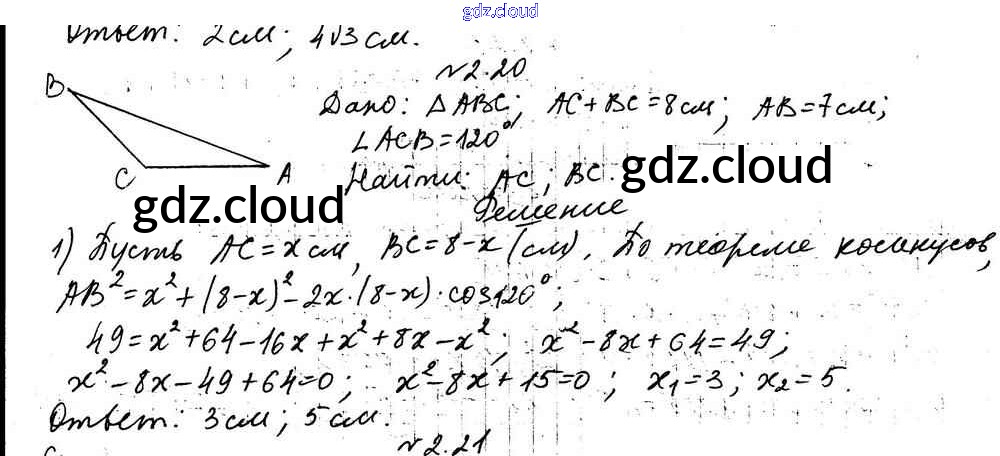 gdz.cloud
Ответ: 2см; 4√3 см.
№2.20
B
Дано: △ABC; AC+BC=8см; AB=7см;
∠ACB=120°
C
A
Найти: AC; BC.
gdz.cloud
gdz.cloud
Решение
1) Пусть AC=x см, BC=8-x (см). По теореме косинусов,
AB²=x²+(8-x)²-2x·(8-x)·cos120°;
49=x²+64-16x+x²+8x-x²; x²-8x+64=49;
x²-8x-49+64=0; x²-8x+15=0; x₁=3; x₂=5.
Ответ: 3см; 5см.
№2.21